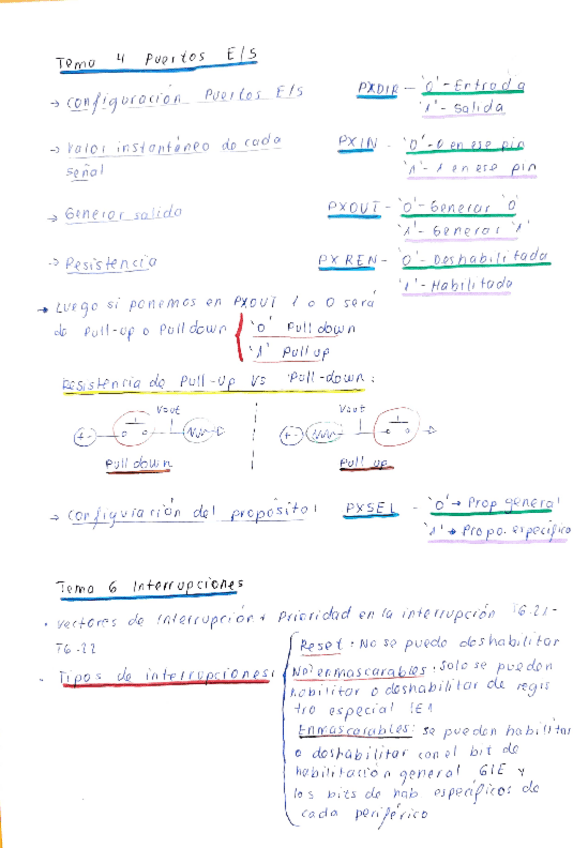 Tema 4 Puertos E/S
→ Configuración Puertos E/S PXDIR - '0' - Entrada
'1' - Salida
→ Valor instantáneo de cada señal PXIN - '0' - 0 en ese pin
'1' - 1 en ese pin
→ Generar salida PXOUT - '0' - Generar '0'
'1' - Generar '1'
→ Resistencia PXREN - '0' - Deshabilitada
'1' - Habilitada
→ Luego si ponemos en PXOUT 1 o 0 será
de Pull-up o Pull down '0' Pull down
'1' Pull up
Resistencia de Pull-up vs Pull-down:
Vout Vout
Pull down Pull up
→ Configuración del propósito PXSEL - '0' → Prop general
'1' → Propo. específico
Tema 6 Interrupciones
· Vectores de Interrupción + Prioridad en la interrupción T6.21-
T6.22
- Tipos de interrupciones:
Reset: No se puede deshabilitar
No enmascarables: Solo se pueden
habilitar o deshabilitar de regis
tro especial IE1
Enmascarables: se pueden habilitar
o deshabilitar con el bit de
habilitación general GIE y
los bits de hab específicos de
cada periférico